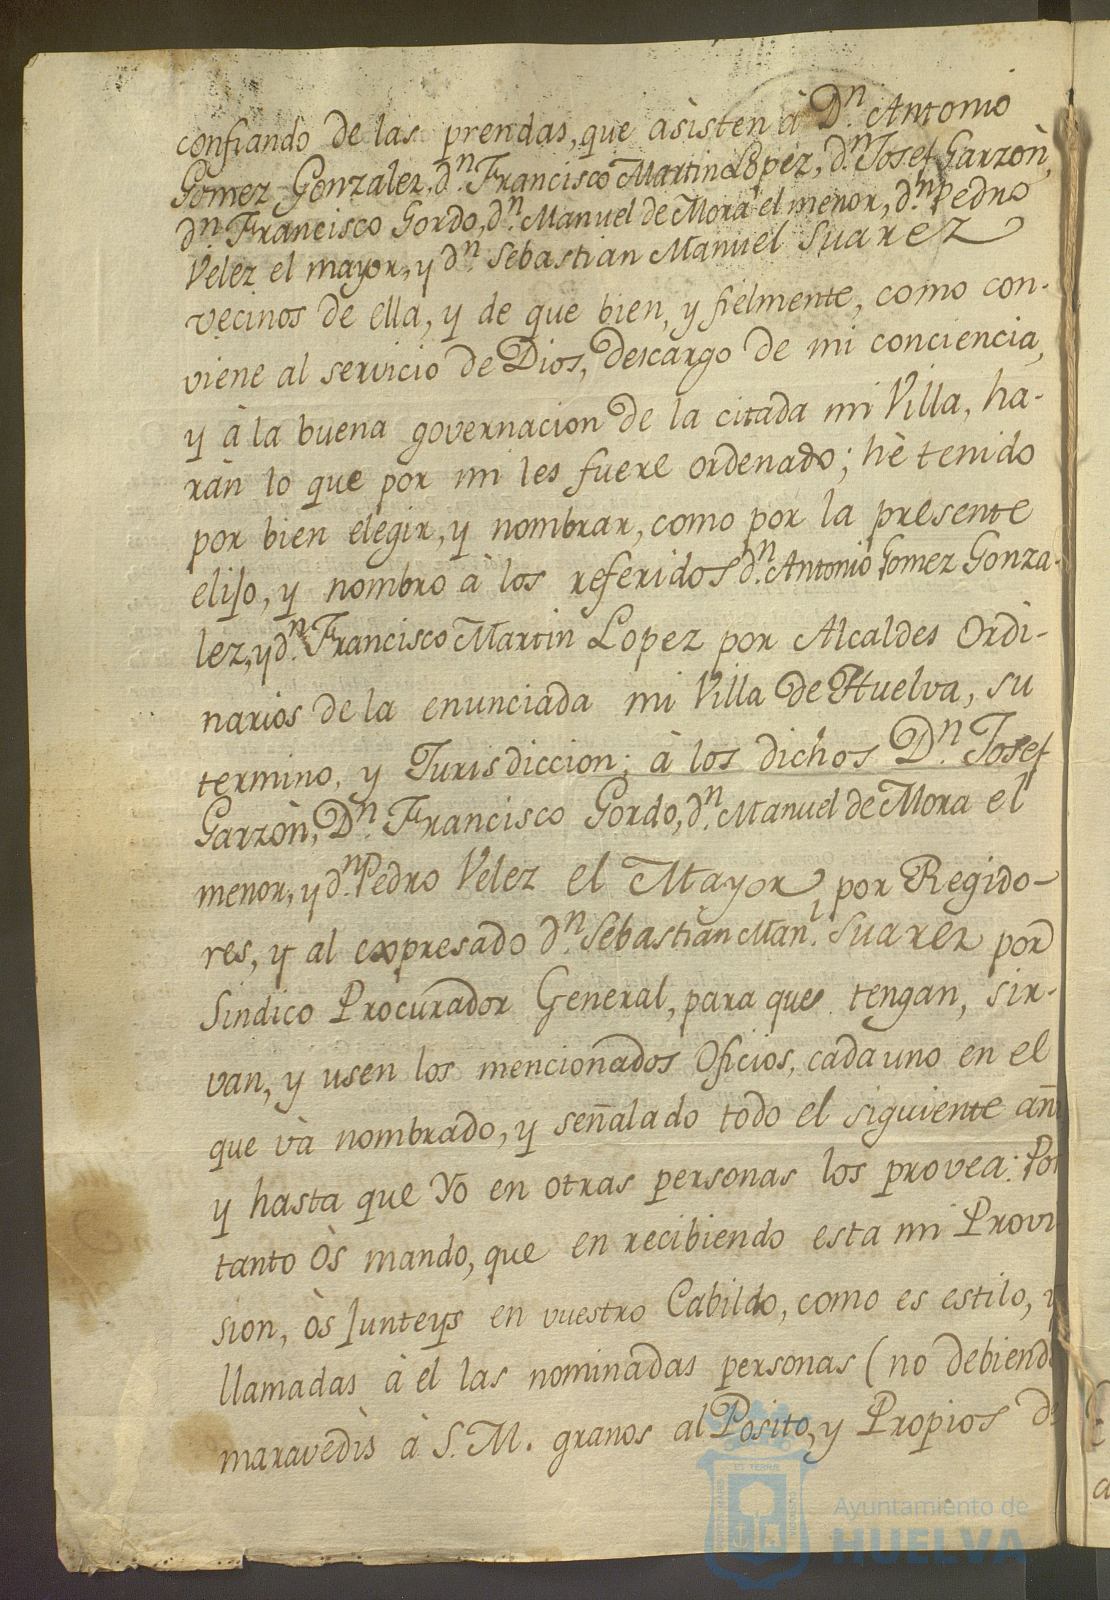 confiando de las prendas, que àsisten à Dn. Antonio
Gomez Gonzalez, dn. Francisco Martin Lopez, dn. Josef Garzòn,
dn. Francisco Gordo, dn. Manuel de Mora el menor, dn. Pedro
Velez el mayor, y dn. Sebastian Manuel Suarez
vecinos de ella, y de que bien, y fielmente, como con-
viene al servicio de Dios, descargo de mi conciencia,
y à la buena governacion de la citada mi Villa, ha-
ràn lo que por mi les fuere ordenado; hè tenido
por bien elegir, y nombrar, como por la presente
elijo, y nombro à los referidos dn. Antonio Gomez Gonza-
lez, y dn. Francisco Martin Lopez por Alcaldes Ordi-
narios de la enunciada mi Villa de Huelva, su
termino, y Jurisdiccion; à los dichos Dn. Josef
Garzòn, Dn. Francisco Gordo, dn. Manuel de Mora el
menor, y dn. Pedro Velez el Mayor, por Regido-
res, y al expresado dn. Sebastian Manl. Suarez por
Sindico Procurador General, para que tengan, sir-
van, y usen los mencionados Oficios, cada uno en el
que và nombrado, y señalado todo el siguiente añ
y hasta que Yo en otras personas los provea: Por
tanto Òs mando, que en recibiendo esta mi Provi
sion, òs Junteys en vuestro Cabildo, como es estilo, y
llamadas à èl las nominadas personas (no debiendo
maravedìs à S. M. granos al Posito, y Propios de
Ayuntamiento de
HUELVA